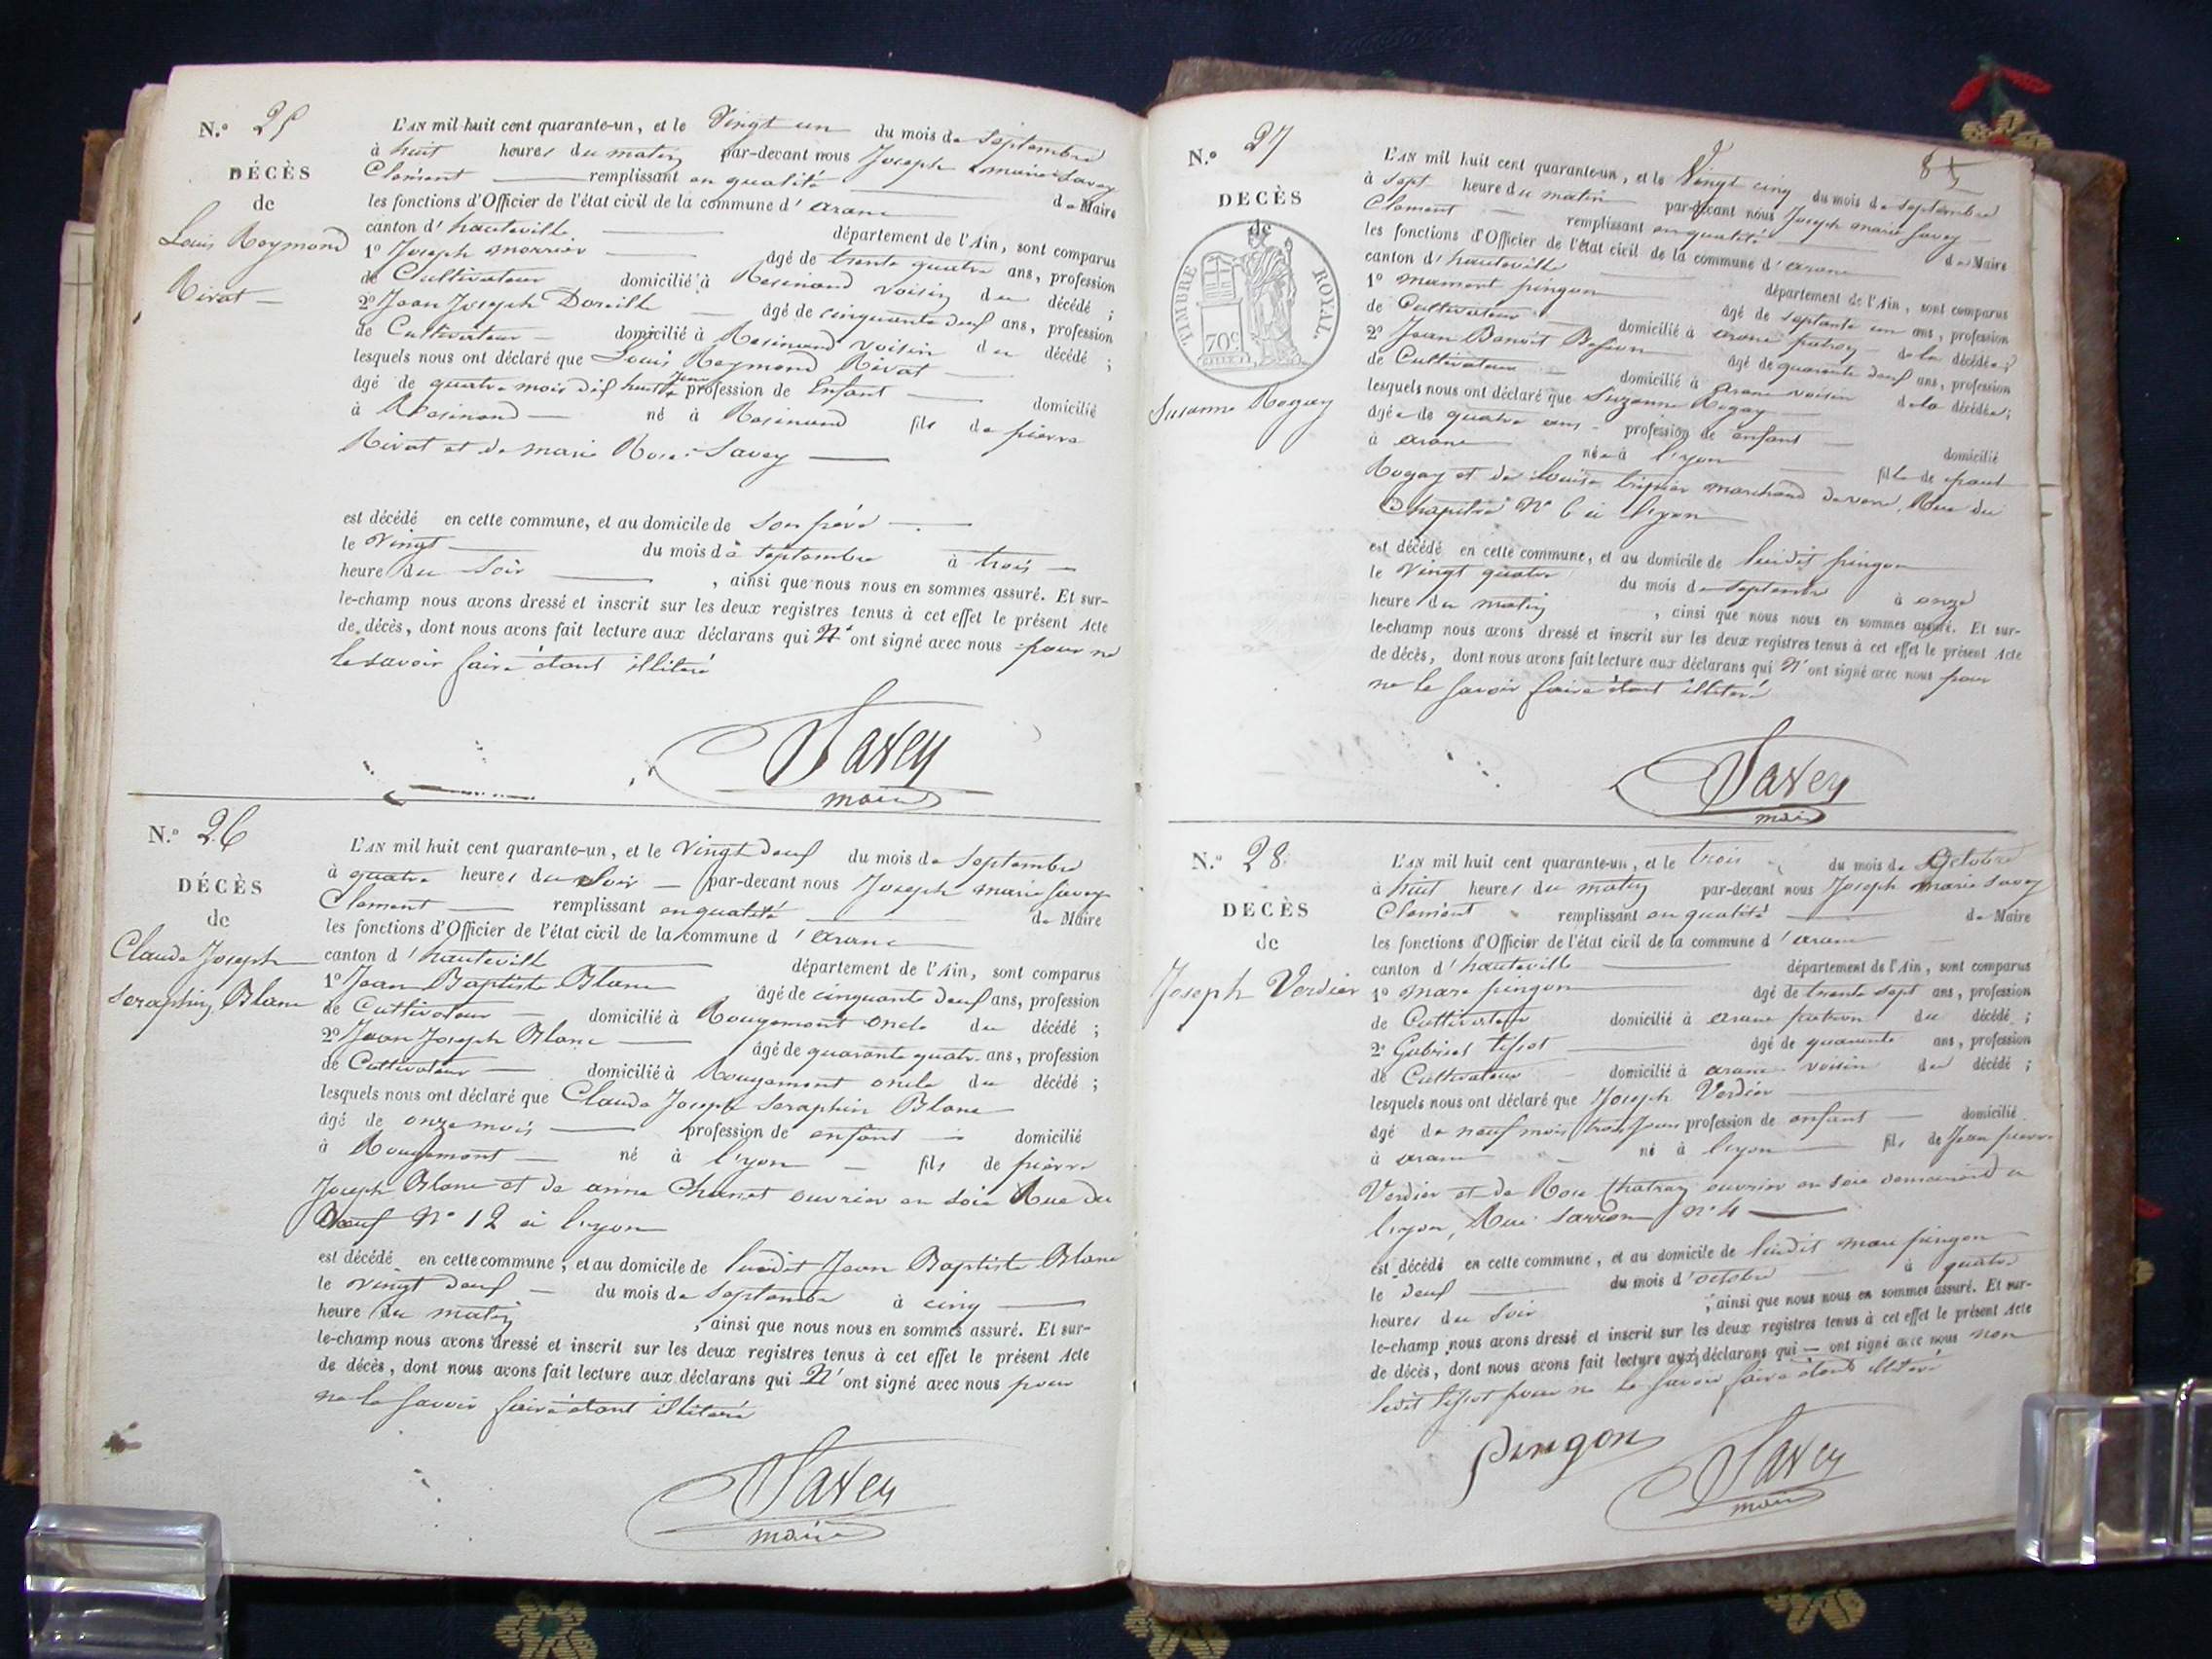 N.° 25
DÉCÈS
de
Louis Reymond
Rivat
L'AN mil huit cent quarante-un, et le Vingt un du mois de Septembre
à huit heures du matin par-devant nous Joseph marie Savey
Clement remplissant en qualité de Maire
les fonctions d'Officier de l'état civil de la commune d'arane
canton d'hauteville département de l'Ain, sont comparus
1° Joseph âgé de trente quatre ans, profession
de Cultivateur domicilié à Resinand voisin du décédé ;
2° Jean Joseph âgé de cinquante deuf ans, profession
de Cultivateur domicilié à Resinand voisin du décédé ;
lesquels nous ont déclaré que Louis Reymond Rivat
âgé de quatre mois dif huit jour profession de Enfant domicilié
à Resinand né à Resinand fils de pierre
Rivat et de marie Rose Savey
est décédé en cette commune, et au domicile de son père
le Vingt du mois de Septembre à trois
heure du Soir , ainsi que nous nous en sommes assuré. Et sur-
le-champ nous avons dressé et inscrit sur les deux registres tenus à cet effet le présent Acte
de décès, dont nous avons fait lecture aux déclarans qui N'ont signé avec nous pour ne
le savoir faire étant illiteré
Savey
maire
N.° 26
DÉCÈS
de
Claude Joseph
Seraphin Blanc
L'AN mil huit cent quarante-un, et le Vingt deuf du mois de Septembre
à quatre heures du Soir par-devant nous Joseph marie Savey
Clement remplissant en qualité de Maire
les fonctions d'Officier de l'état civil de la commune d'arane
canton d'hauteville département de l'Ain, sont comparus
1° Jean Baptiste Blanc âgé de cinquante deuf ans, profession
de Cultivateur domicilié à Rougemont oncle du décédé ;
2° Jean Joseph Blanc âgé de quarante quatre ans, profession
de Cultivateur domicilié à Rougemont oncle du décédé ;
lesquels nous ont déclaré que Claude Joseph Seraphin Blanc
âgé de onze mois profession de enfant domicilié
à Rougemont né à lyon fils de pierre
Joseph Blanc et de anne ouvrier en soie Rue du
Boeuf N° 12 à lyon
est décédé en cette commune, et au domicile de ludit Jean Baptiste Blanc
le vingt deuf du mois de Septembre à cinq
heure du matin , ainsi que nous nous en sommes assuré. Et sur-
le-champ nous avons dressé et inscrit sur les deux registres tenus à cet effet le présent Acte
de décès, dont nous avons fait lecture aux déclarans qui N'ont signé avec nous pour
ne le savoir faire étant illiteré
Savey
maire
N.° 27
DECÈS
de
TIMBRE ROYAL.
70c
Suzanne Rogay
L'AN mil huit cent quarante-un, et le Vingt cinq du mois de Septembre
à Sept heure du matin par-devant nous Joseph marie Savey
Clement remplissant en qualité de Maire
les fonctions d'Officier de l'état civil de la commune d'arane
canton d'hauteville département de l'Ain, sont comparus
1° mament pingon âgé de Septante un ans, profession
de Cultivateur domicilié à arane patron de la décédée ;
2° Jean Benoit âgé de quarante deuf ans, profession
de Cultivateur domicilié à arane voisin de la décédée ;
lesquels nous ont déclaré que Suzanne Rogay
âgée de quatre ans profession de enfant domicilié
à arane née à lyon fille de paul
Rogay et de Louise marchand de vin, Rue du
Chapitre N° 6 à lyon
est décédé en cette commune, et au domicile de ludit pingon
le Vingt quatre du mois de Septembre à onze
heure du matin , ainsi que nous nous en sommes assuré. Et sur-
le-champ nous avons dressé et inscrit sur les deux registres tenus à cet effet le présent Acte
de décès, dont nous avons fait lecture aux déclarans qui N'ont signé avec nous pour
ne le savoir faire étant illiteré
Savey
maire
N.° 28
DECÈS
de
Joseph Verdier
L'AN mil huit cent quarante-un, et le trois du mois de Octobre
à huit heures du matin par-devant nous Joseph marie Savey
Clement remplissant en qualité de Maire
les fonctions d'Officier de l'état civil de la commune d'arane
canton d'hauteville département de l'Ain, sont comparus
1° marc pingon âgé de trente sept ans, profession
de Cultivateur domicilié à arane patron du décédé ;
2° Gabriel tissot âgé de quarante ans, profession
de Cultivateur domicilié à arane voisin du décédé ;
lesquels nous ont déclaré que Joseph Verdier
âgé de neuf mois trois jours profession de enfant domicilié
à arane né à lyon fils de Jean pierre
Verdier et de Rose ouvrier en soie demeurand a
lyon, Rue Sarron N° 4
est décédé en cette commune, et au domicile de ludit marc pingon
le deuf du mois d'octobre à quatre
heures du Soir , ainsi que nous nous en sommes assuré. Et sur-
le-champ nous avons dressé et inscrit sur les deux registres tenus à cet effet le présent Acte
de décès, dont nous avons fait lecture aux déclarans qui ont signé avec nous non
ledit tissot pour ne le savoir faire étant illiteré
pingon
Savey
maire